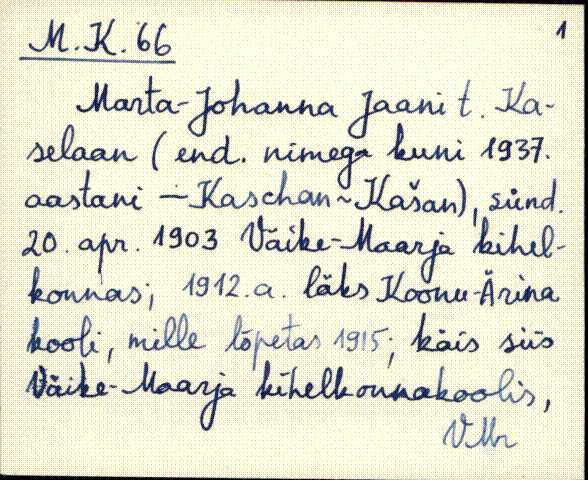 M.K. 66
1
Marta-Johanna Jaani t. Ka-
selaan (end. nimega kuni 1937.
aastani — Kaschan ~ Kašan), sünd.
20. apr. 1903 Väike-Maarja kihel-
konnas; 1912.a. läks Koonu-Ärina
kooli, mille lõpetas 1915; käis siis
Väike-Maarja kihelkonnakoolis,
VMr